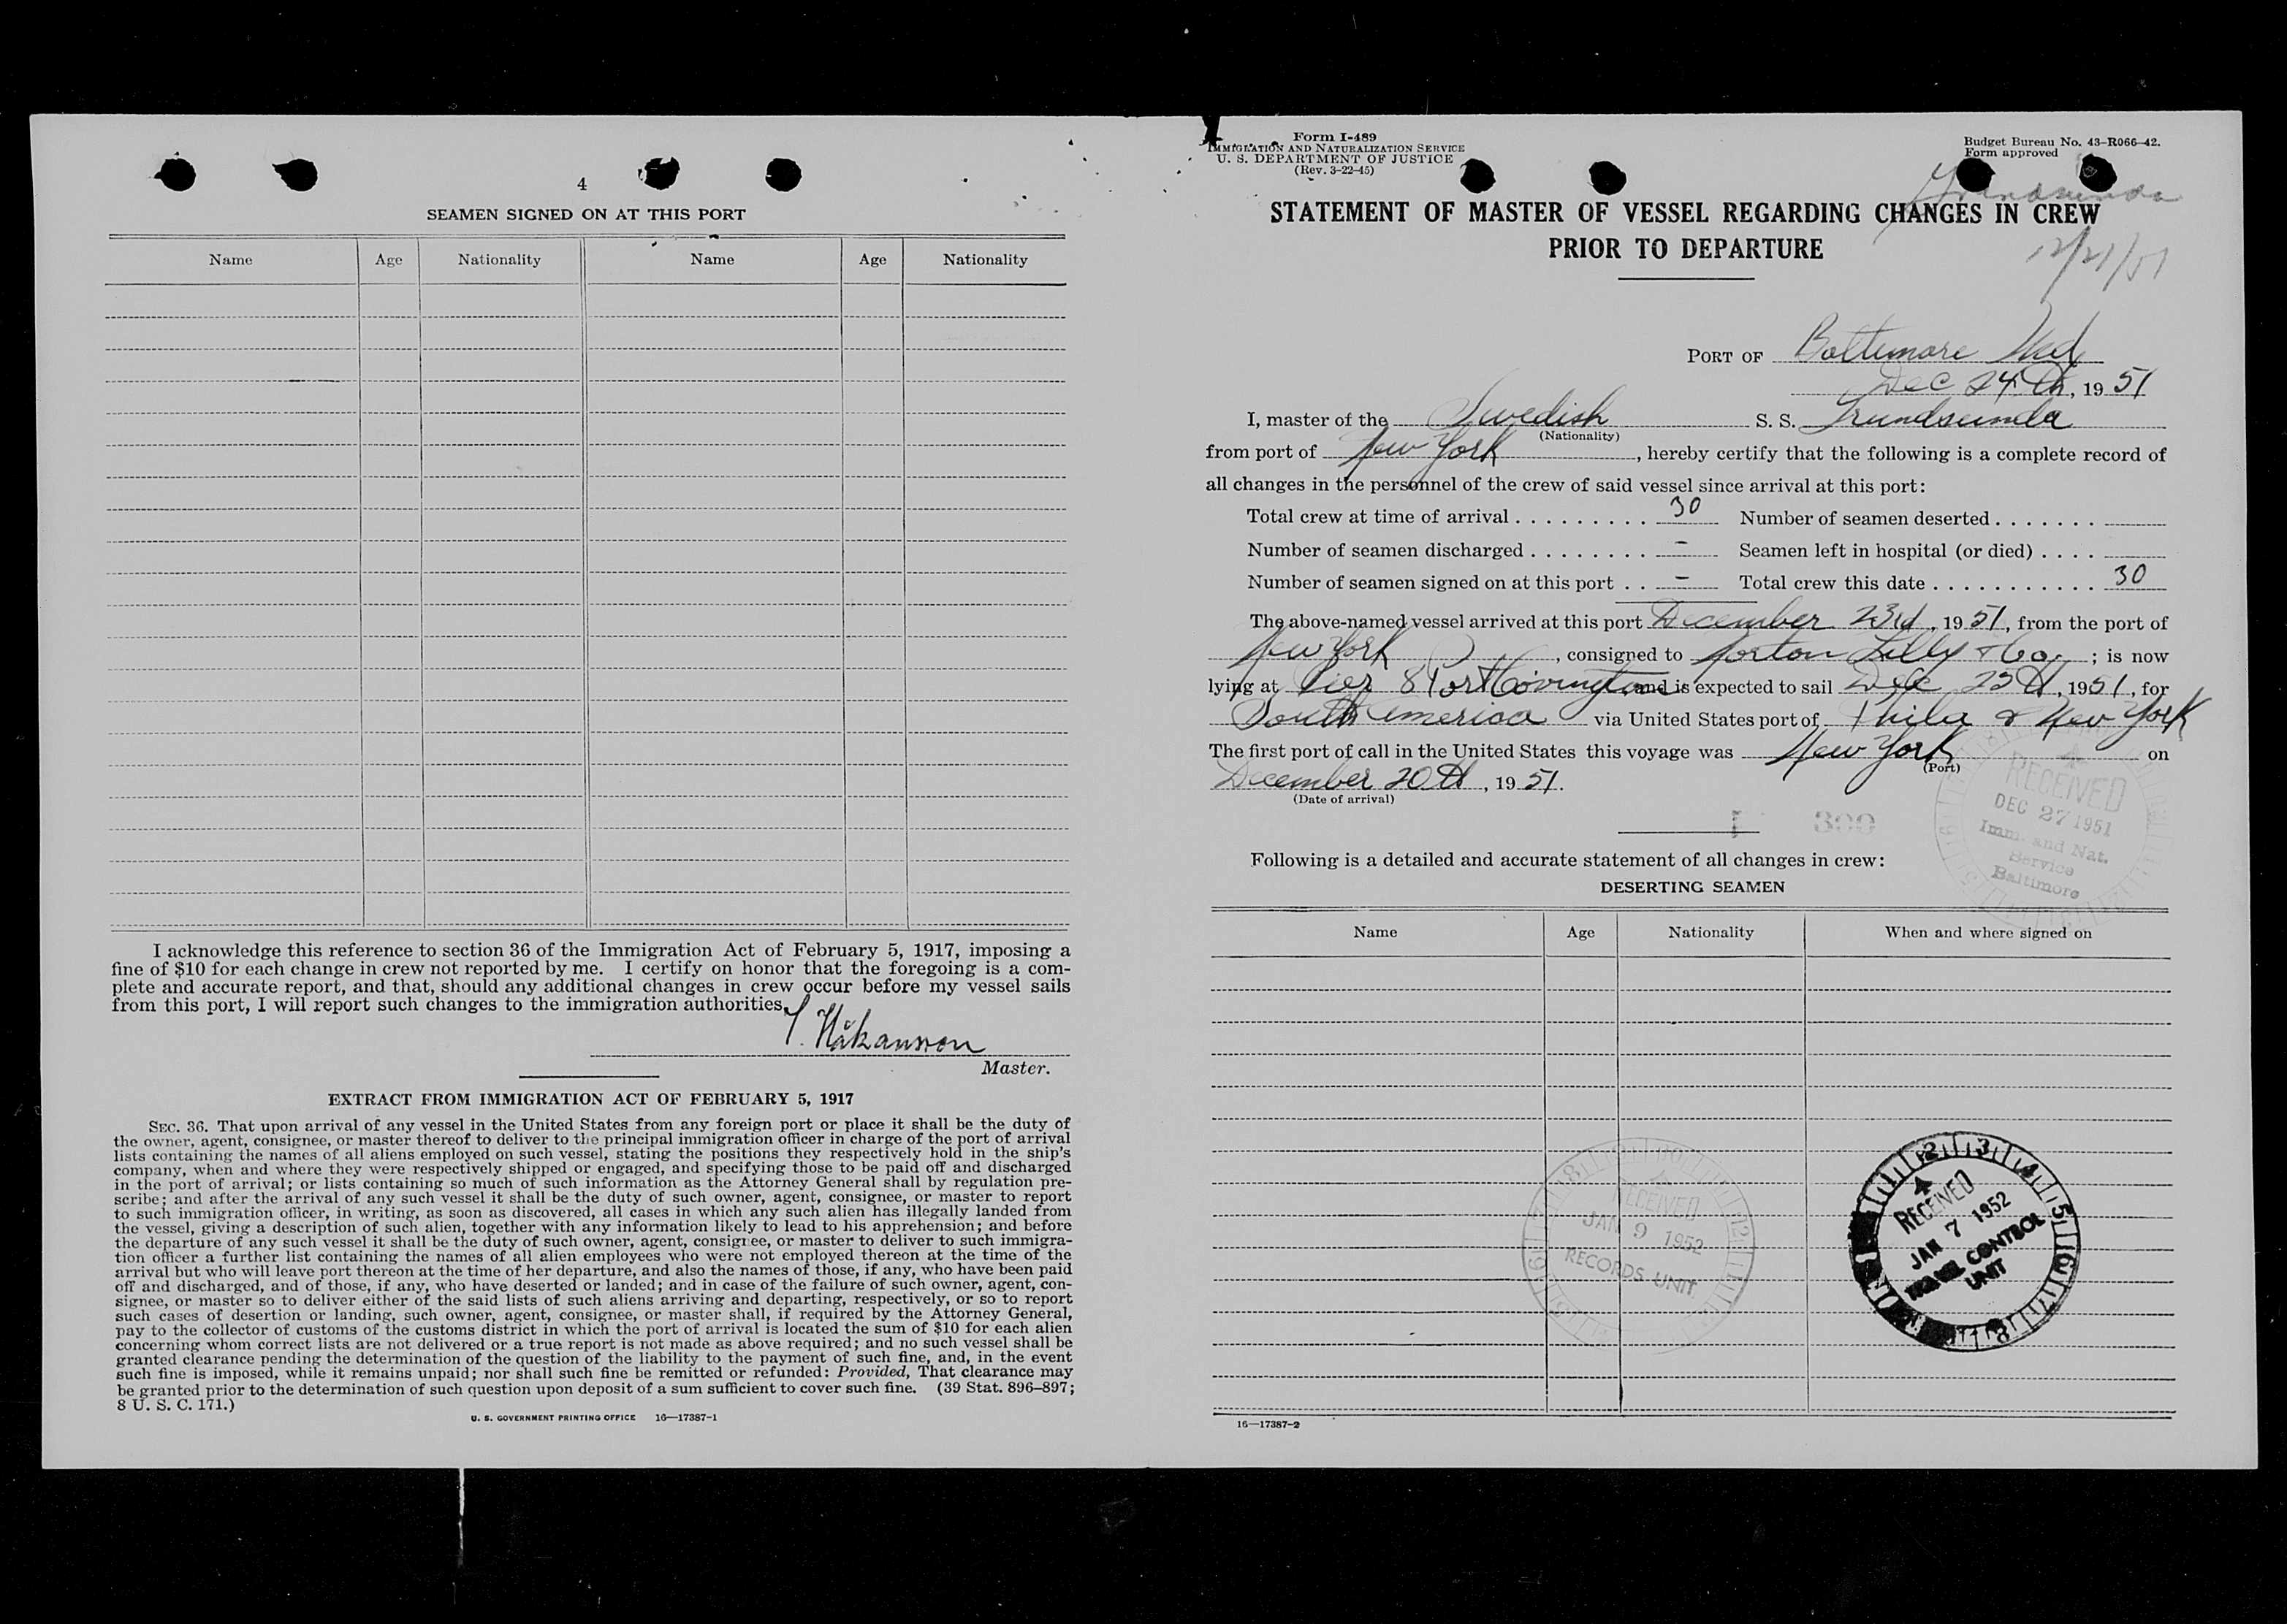 4
SEAMEN SIGNED ON AT THIS PORT
Name Age Nationality Name Age Nationality
I acknowledge this reference to section 36 of the Immigration Act of February 5, 1917, imposing a
fine of $10 for each change in crew not reported by me. I certify on honor that the foregoing is a com-
plete and accurate report, and that, should any additional changes in crew occur before my vessel sails
from this port, I will report such changes to the immigration authorities.
Håkansson
Master.
EXTRACT FROM IMMIGRATION ACT OF FEBRUARY 5, 1917
SEC. 36. That upon arrival of any vessel in the United States from any foreign port or place it shall be the duty of
the owner, agent, consignee, or master thereof to deliver to the principal immigration officer in charge of the port of arrival
lists containing the names of all aliens employed on such vessel, stating the positions they respectively hold in the ship's
company, when and where they were respectively shipped or engaged, and specifying those to be paid off and discharged
in the port of arrival; or lists containing so much of such information as the Attorney General shall by regulation pre-
scribe; and after the arrival of any such vessel it shall be the duty of such owner, agent, consignee, or master to report
to such immigration officer, in writing, as soon as discovered, all cases in which any such alien has illegally landed from
the vessel, giving a description of such alien, together with any information likely to lead to his apprehension; and before
the departure of any such vessel it shall be the duty of such owner, agent, consignee, or master to deliver to such immigra-
tion officer a further list containing the names of all alien employees who were not employed thereon at the time of the
arrival but who will leave port thereon at the time of her departure, and also the names of those, if any, who have been paid
off and discharged, and of those, if any, who have deserted or landed; and in case of the failure of such owner, agent, con-
signee, or master so to deliver either of the said lists of such aliens arriving and departing, respectively, or so to report
such cases of desertion or landing, such owner, agent, consignee, or master shall, if required by the Attorney General,
pay to the collector of customs of the customs district in which the port of arrival is located the sum of $10 for each alien
concerning whom correct lists are not delivered or a true report is not made as above required; and no such vessel shall be
granted clearance pending the determination of the question of the liability to the payment of such fine, and, in the event
such fine is imposed, while it remains unpaid; nor shall such fine be remitted or refunded: Provided, That clearance may
be granted prior to the determination of such question upon deposit of a sum sufficient to cover such fine. (39 Stat. 896–897;
8 U. S. C. 171.)
U. S. GOVERNMENT PRINTING OFFICE 16—17387-1
Form I-489
IMMIGRATION AND NATURALIZATION SERVICE
U. S. DEPARTMENT OF JUSTICE
(Rev. 3-22-45)
Budget Bureau No. 43-R066-42.
Form approved
STATEMENT OF MASTER OF VESSEL REGARDING CHANGES IN CREW
PRIOR TO DEPARTURE
12/21/51
PORT OF Baltimore Md
Dec 24th, 1951
I, master of the Swedish S. S. Trundsunda
(Nationality)
from port of New York, hereby certify that the following is a complete record of
all changes in the personnel of the crew of said vessel since arrival at this port:
Total crew at time of arrival . . . . . . . . . 30 Number of seamen deserted . . . . . . .
Number of seamen discharged . . . . . . . . - Seamen left in hospital (or died) . . . .
Number of seamen signed on at this port . . - Total crew this date . . . . . . . . . . . . 30
The above-named vessel arrived at this port December 23rd, 1951, from the port of
New York, consigned to Norton Lilly & Co.; is now
lying at Pier 8 Port Covington and is expected to sail Dec 25th, 1951, for
South America via United States port of Phila & New York
The first port of call in the United States this voyage was New York on
(Port)
December 20th, 1951.
(Date of arrival)
RECEIVED
DEC 27 1951
Imm. and Nat.
Service
Baltimore
Following is a detailed and accurate statement of all changes in crew:
DESERTING SEAMEN
Name Age Nationality When and where signed on
RECEIVED
JAN 9 1952
RECORDS UNIT
RECEIVED
JAN 7 1952
TRAVEL CONTROL
UNIT
16—17387-2